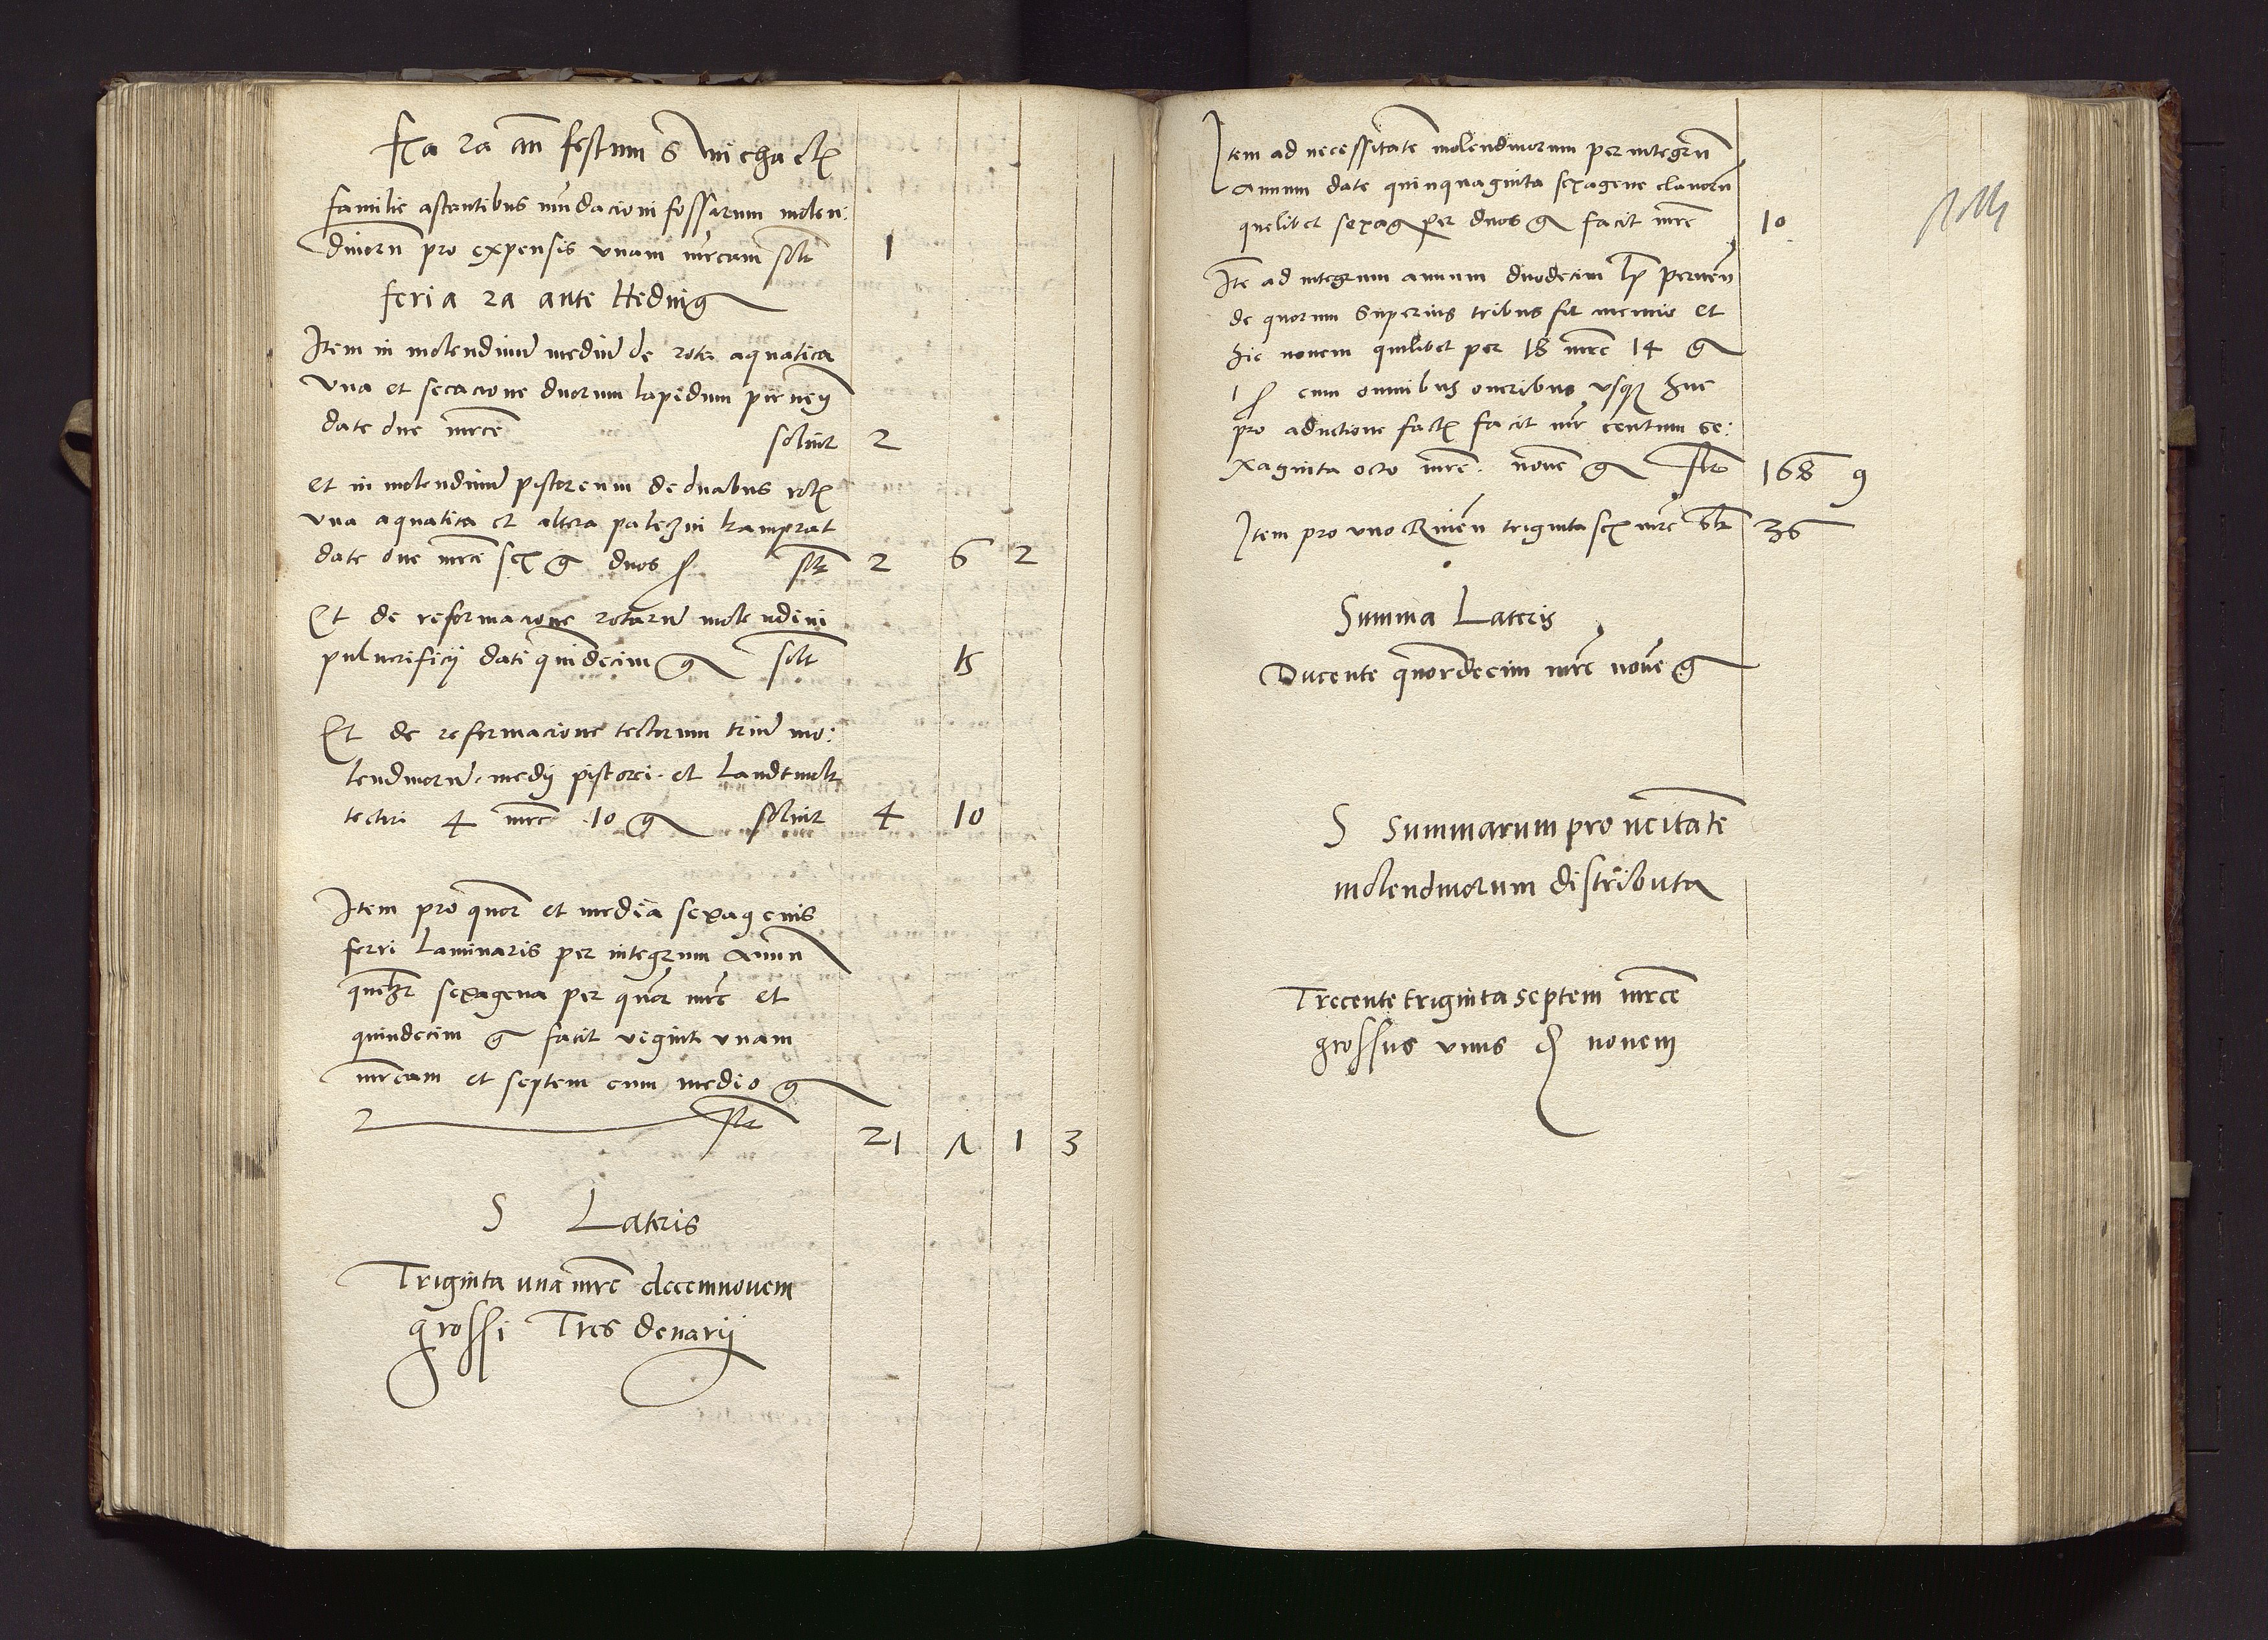 fria 2a an festum S Michaelis
familie astantibus mundacioni fossarum molen:
dinorum pro expensis vnam mrcam solt 1
feria 2a ante Hedwig
Item in molendinum medium de rota aquatica
vna et secacione duorum lapidum pirneñ
date due mrce soluit 2
et in molendinum pistoreum de duabus rotis
vna aquatica et altera paleczni kamprat
date due mrce sex g duos solt 2 6 2
Et de reformacione rotarum molendini
pulverificij dati quindecim g solt 15
Et de reformacione tectorum trium mo:
lendinorum medij pistorei et Landtmolt
tectori 4 mrce 10 g soluit 4 10
Item pro quor et media sexagenis
ferri laminaris per integrum annum
quelibet sexagena per quor mrce et
quindecim g facit viginti vnam
mrcam et septem cum medio g
solt 21 7 1 3
S Lateris
Triginta una mrce decemnouem
grossi Tres denarij
Item ad necessitatem molendinorum per integrum
annum date quinquaginta sexagene clauorum
quelibet sexag per duos g facit mrce 10
Item ad integrum annum duodecim lp perneñ
de quorum superius tribus fit mencio et
hic nouem quilibet per 18 mrce 14 g
1 cum omnibus oneribus vsque huc
pro aductione factis facit mr centum se:
xaginta octo mrce nouem g solt 168 9
Item pro vno Rineñ triginta sex mrce solt 36
Summa Lateris
Ducente quordecim mrce noue g
S Summarum pro ncitate
molendinorum distributa
Trecente triginta septem mrce
grossus unus d nouem